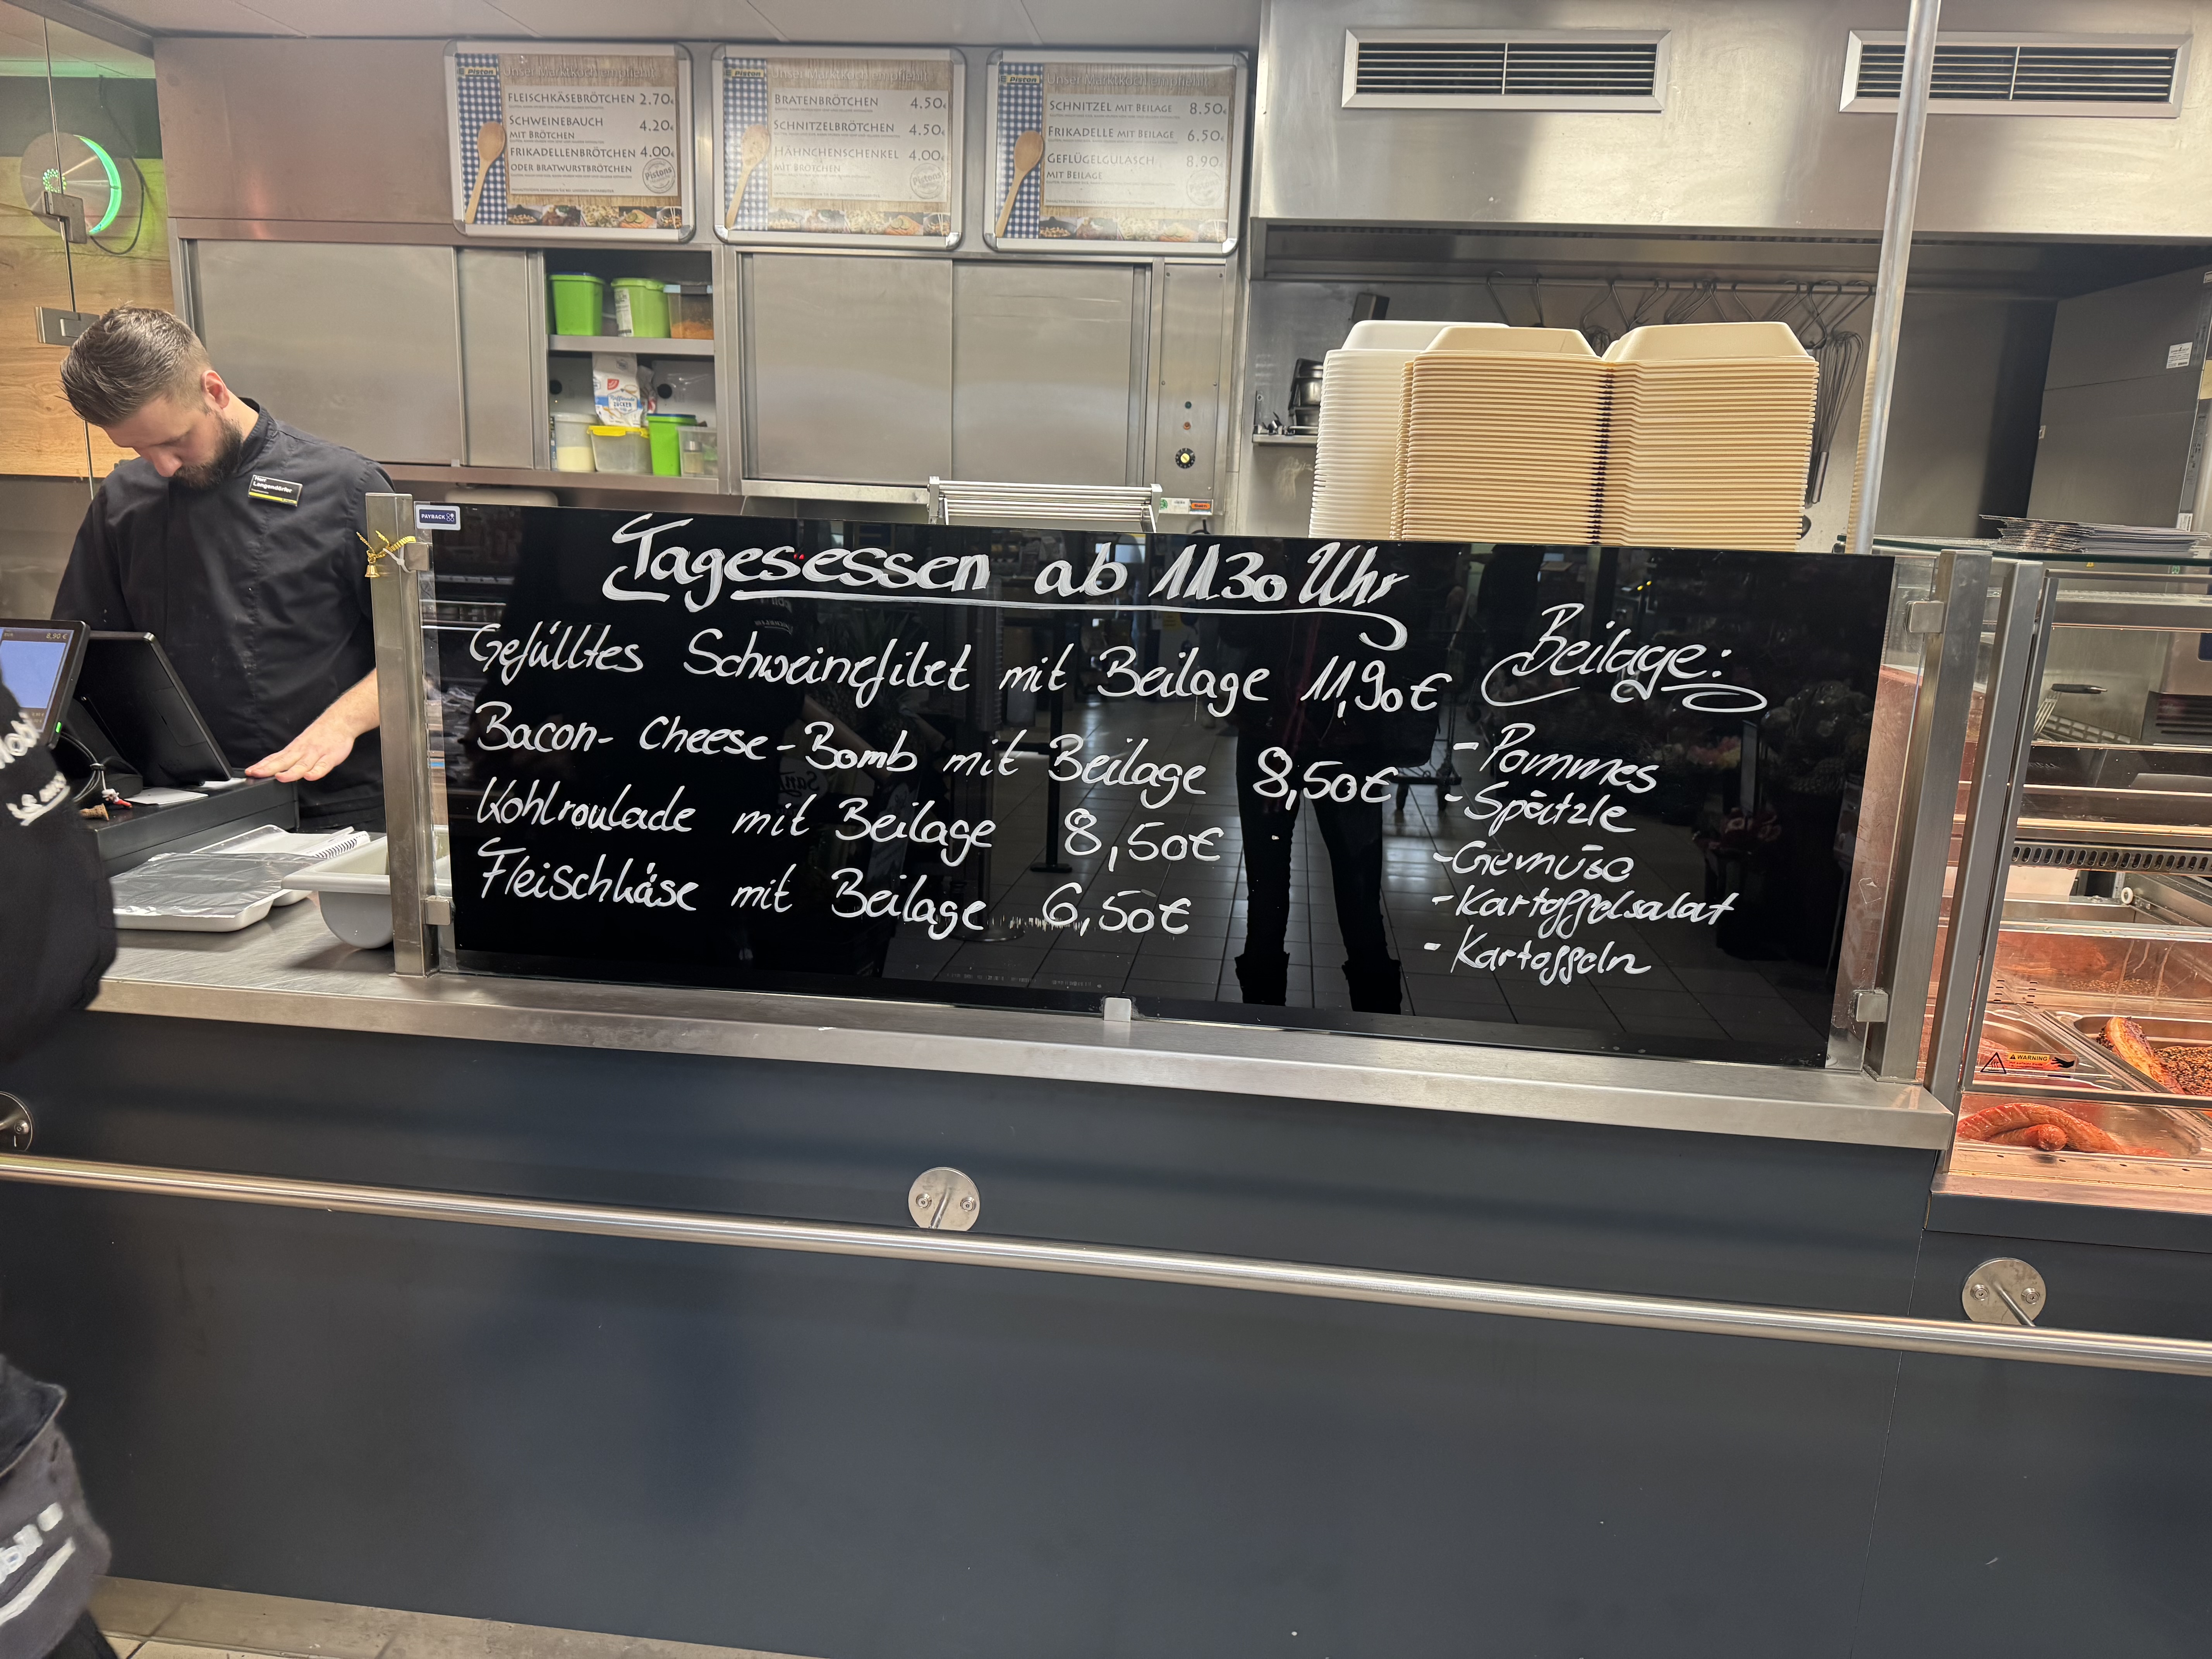 Piston
Unser Marktkoch empfiehlt
FLEISCHKÄSEBRÖTCHEN 2.70€
SCHWEINEBAUCH
MIT BRÖTCHEN 4.20€
FRIKADELLENBRÖTCHEN 4.00€
ODER BRATWURSTBRÖTCHEN
Pistons
Piston
Unser Marktkoch empfiehlt
BRATENBRÖTCHEN 4.50€
SCHNITZELBRÖTCHEN 4.50€
HÄHNCHENSCHENKEL 4.00€
MIT BRÖTCHEN
Pistons
Piston
Unser Marktkoch empfiehlt
SCHNITZEL MIT BEILAGE 8.50€
FRIKADELLE MIT BEILAGE 6.50€
GEFLÜGELGULASCH 8.90
MIT BEILAGE
Pistons
ZUCKER
Herr
Langendörfer
PAYBACK
8,90 €
Tagesessen ab 11.30 Uhr
Gefülltes Schweinefilet mit Beilage 11,90€
Bacon-Cheese-Bomb mit Beilage 8,50€
Kohlroulade mit Beilage 8,50€
Fleischkäse mit Beilage 6,50€
Beilage:
- Pommes
- Spätzle
- Gemüse
- Kartoffelsalat
- Kartoffeln
WARNING